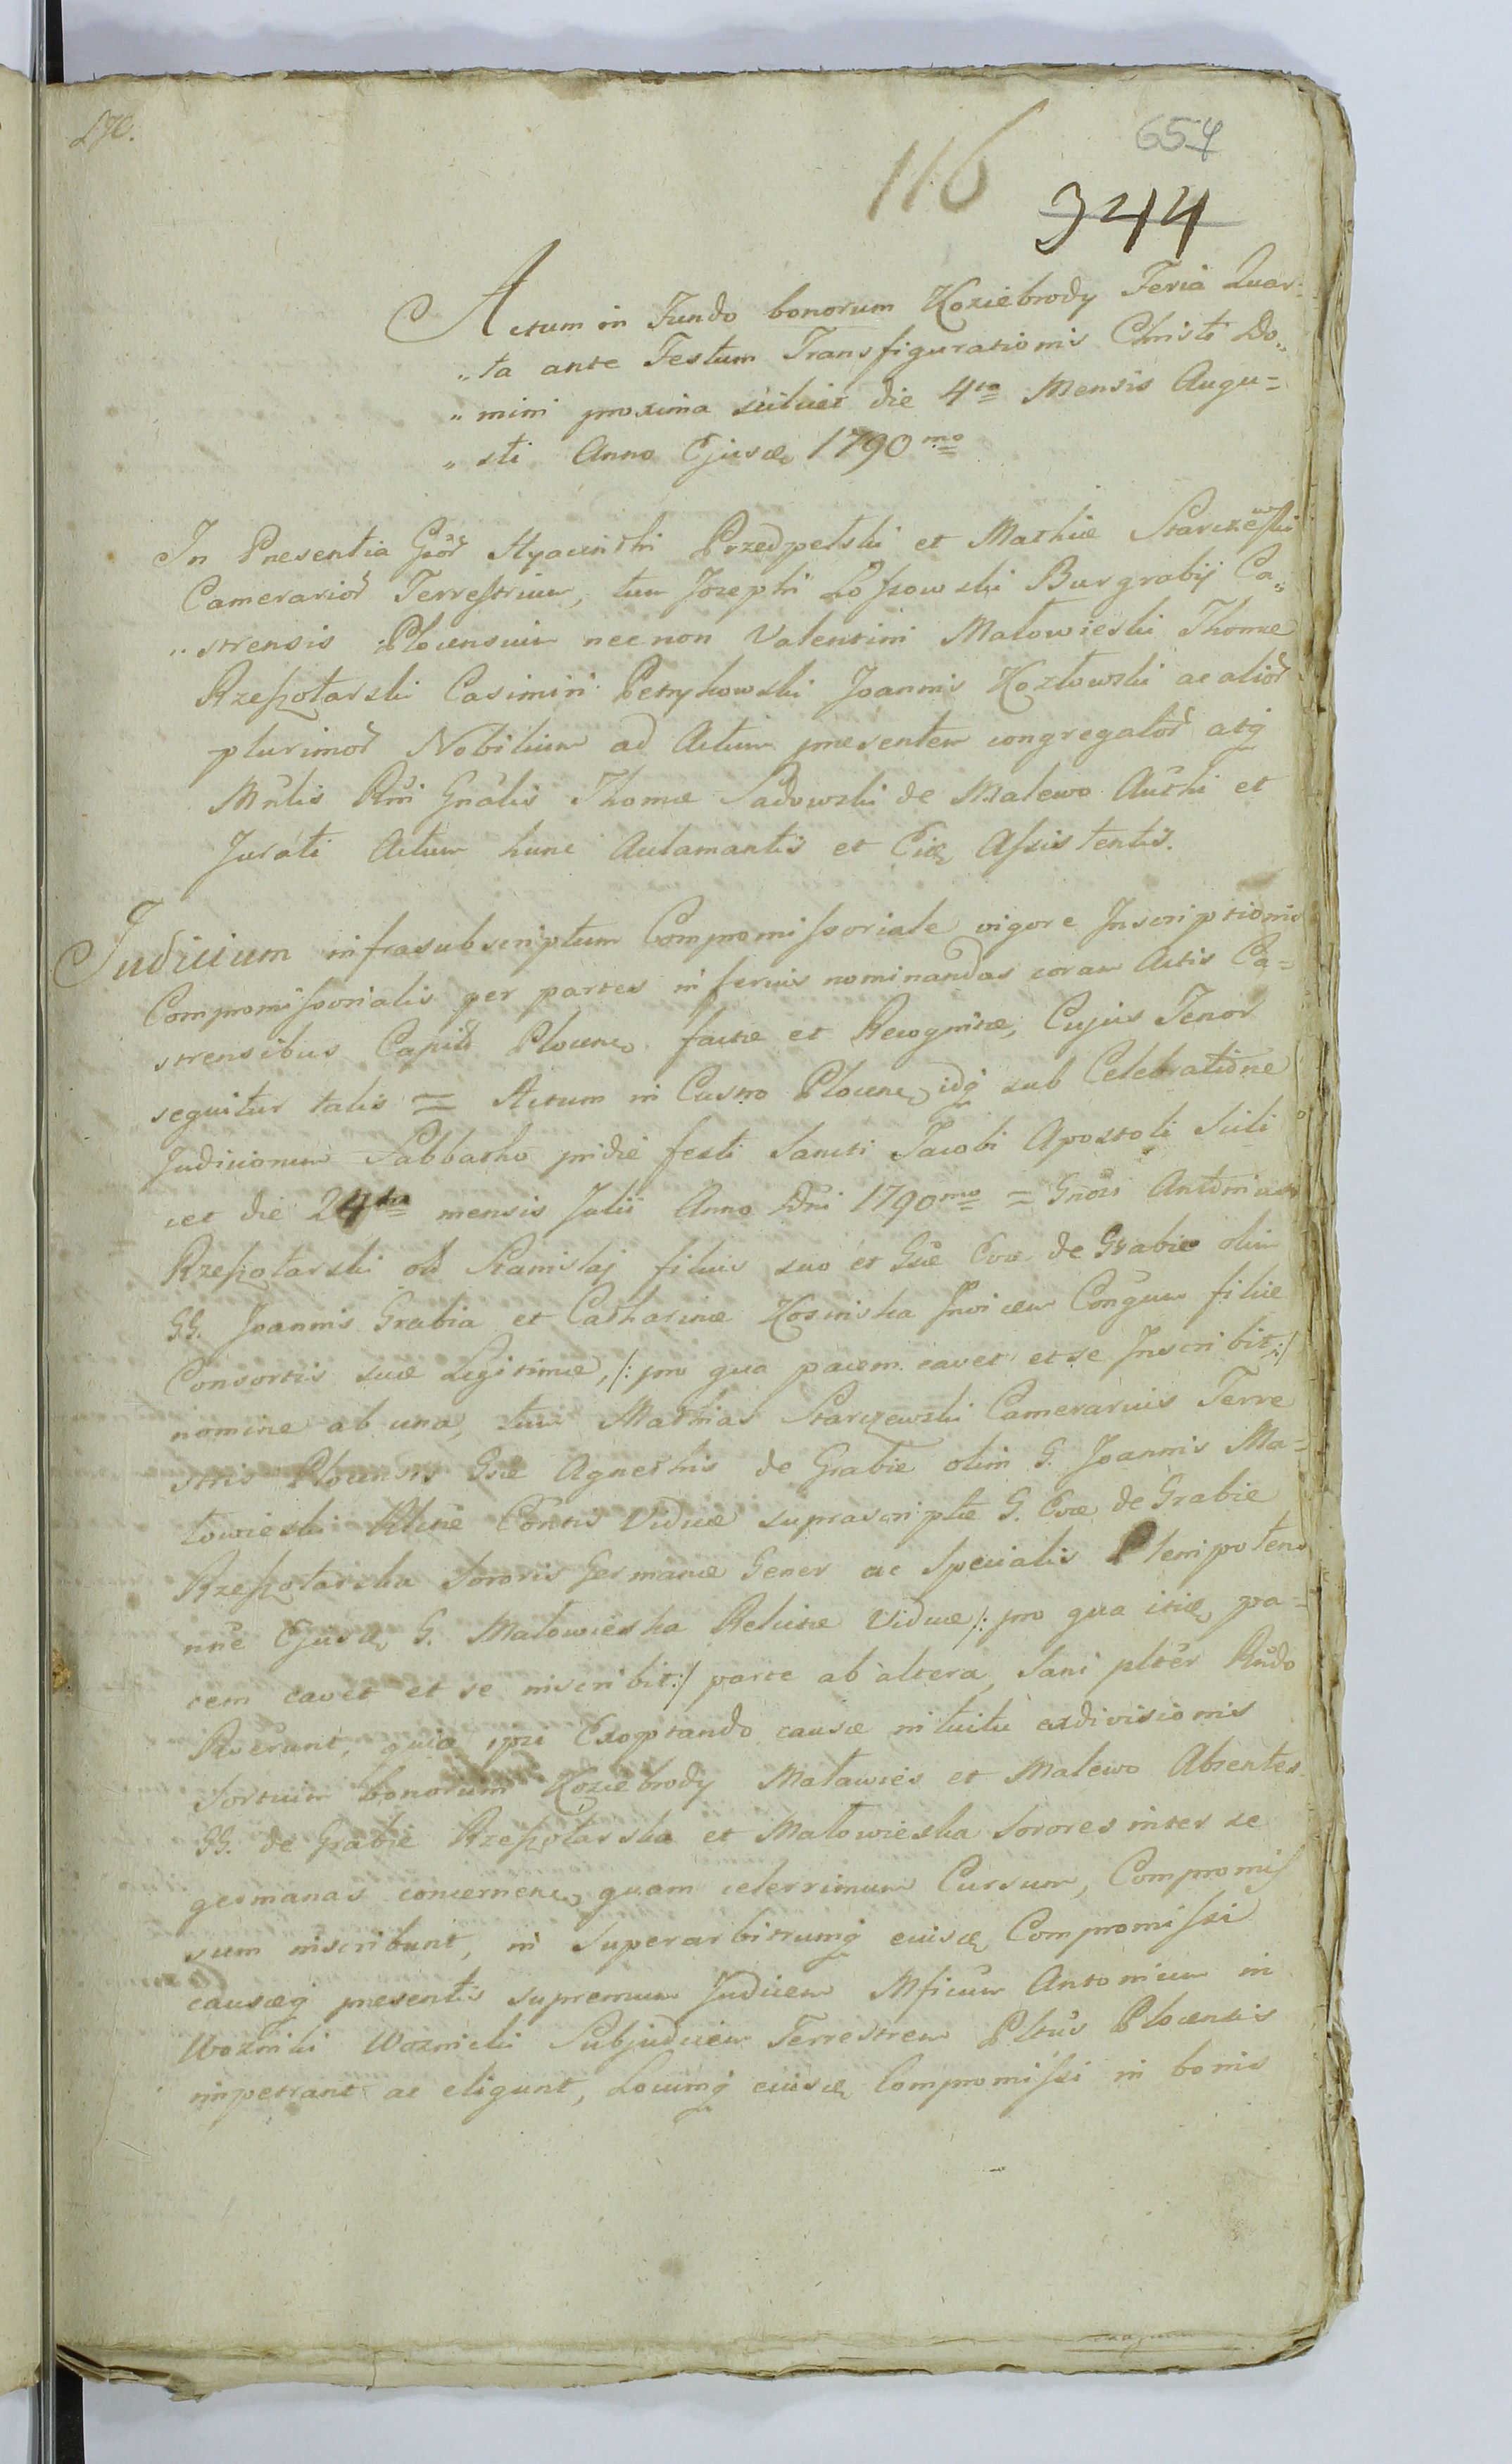 116
657
344
Actum in Fundo bonorum Koziebrody Feria Quar-
"ta ante Festum Transfigurationis Christi Do"
"mini proxima scilicet die 4ta Mensis Augu=
"sti Anno Ejusd 1790mo
In Presentia Gsor Hyacinthi Przedpelski et Mathiæ Starczewski
Camerarior Terrestrium, tum Josephi Lossowski Burgrabij Ca"
"strensis Plocensium necnon Valentini Małowieski Thomæ
Rzeszotarski Casimiri Petrykowski Joannis Kozłowski ac alior
plurimor Nobilium ad Actum presentem congregator atq
Mnlis Rni Gnalis Thomæ Sadowski de Malewo Authi et
Jurati Actum hunc Aclamantis et Eid Assistentis.
Judicium infrasubscriptum Compromissoriale vigore Inscriptionis
Compromissorialis per partes inferius nominandas coram Actis Ca=
strensibus Capit Plocen factæ et Recognitæ, Cujus Tenor
sequitur talis = Actum in Castro Plocen idq sub Celebratione
Judiciorum Sabbatho pridie festi Sancti Jacobi Apostoli Scili
cet die 24ta mensis Julii Anno Dni 1790mo = Gnosi Antonius
Rzeszotarski ol Stanislaj filius suo et Gsæ Evæ de Grabie olim
GG. Joannis Grabia et Catharinæ Kosinska Invicem Congum filiæ
Consortis suæ Legitimæ, /: pro qua pacem cavet et se Inscribit :/
nomine ab una, tum Mathias Starczewski Camerarius Terre
stris Plocensis Gsæ Agnethis de Grabie olim G. Joannis Ma=
łowieski Rlctæ Contis Viduæ suprascriptæ G. Evæ de Grabie
Rzeszotarska Sororis Germanæ Gener ac Specialis Plenipoten
nne Ejusd G. Małowieska Relictæ Viduæ /: pro qua itid pa=
cem cavet et se inscribit :/ parte ab altera, Sani plter Rndo
Rverunt, quia ipsi Exoptando causæ intuitu exdivisionis
Sortium bonorum Koziebrody Maławieś et Malewo Absentes
GG. de Grabie Rzeszotarska et Małowieska Sorores inter se
germanas concernen, quam celerrimum Cursum, Compromis
sum inscribunt, in Superarbitrumq eiusd Compromissi
causæq presentis supremum Judicem Mficum Antonium in
Wozniki Woznicki Subjudicem Terrestrem Pltus Plocensis
impetrant ac eligunt, Locumq eiusd Compromissi in bonis